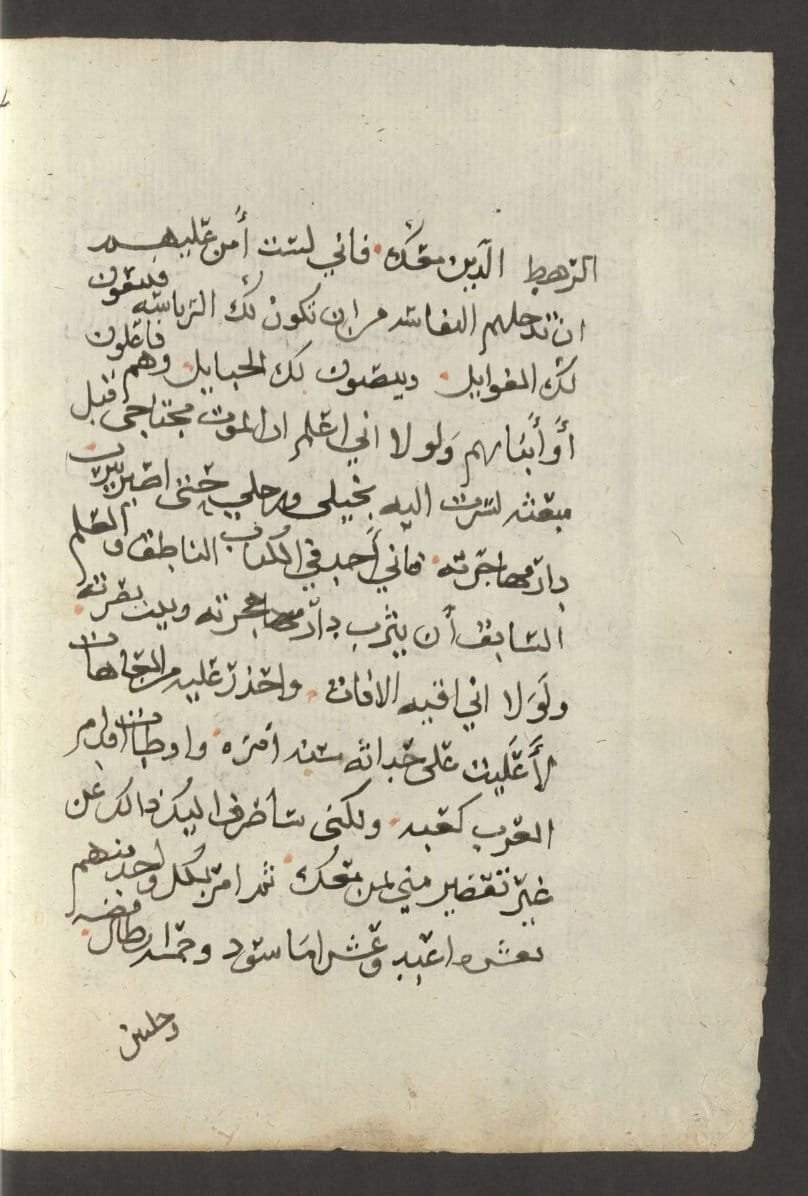 الرهط الذين معك فاني لست أمن عليهم
ان تدخلهم النفاسه من ان تكون لك الرياسه فيبغون
لك الغوايل وينصبون لك الحبايل وهم فاعلون
أو أبنايهم ولولا اني اعلم ان الموت مجتاحي قبل
مبعثه لسرت اليه بخيلي ورجلي حتى اصير بيثرب
دار مهاجرته فاني أجد في الكتاب الناطق والعلم
السابق أن يثرب دار مهاجرته وبيت نصرته
ولولا اني اقيه الافات واحذر عليه من العاهات
لأعليت على حداثه سنه امره واوطات اقدام
العرب كعبه ولكني سأصرف اليك ذالك عن
غير تقصير مني لمن معك ثم امر لكل واحد منهم
بعشره اعبد وعشر اما سود وخمسه ارطال فضه
وحلتين